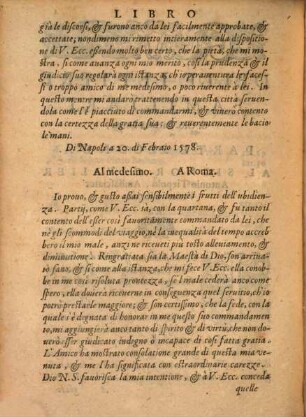 LIBRO
gia le discorsi, & furono anco da lei facilmente approbate, &
accettate; nondimeno mi rimetto intieramente alla dispositio-
ne di V. Ecc. essendo molto ben certo, che la pietà, che mi mo-
stra, si come auanza ogni mio merito, così la prudenza & il
giudicio suo regolarà ogni istanza, ch'io per auentura le facef-
si o troppo amico di me medesimo, o poco riuerente à lei. In
questo mentre mi andarò trattenendo in questa città seruen-
dola come l'è piacciuto di commandarmi, & viuerò contento
con la certezza della gratia sua: & reuerentemente le bacio
le mani.
Di Napoli a 20. di Febraio 1578.
Al medesimo. A Roma.
Io prouo, & gusto assai sensibilmente i frutti dell'vbidien-
za. Partij, come V. Ecc. sa, con la quartana, & fu tanto il
contento dell'esser così fauoritamente commandato da lei, che
nè gli scommodi del viaggio, nè la inequalità del tempo accreb-
bero il mio male, anzi ne riceuei più tosto alleuiamento, &
diminutione. Rengratiata sia la Maestà di Dio, son arriua-
to sano, & si come alla istanza, che mi fece V. Ecc. ella conob-
be in me così risoluta prontezza, se'l male cederà anco come
spero, ella douerà riceuerne in conseguenza quel seruitio, ch'io
potrò prestarle maggiore; & son certissimo, che la fede, con la
quale s'è degnata di honorar in me questo suo commandamen-
to, mi aggiungerà anco tanto di spirito & di virtù, che non do-
uerò esser giudicato indegno ò incapace di così fatta gratia.
L'Amico hà mostrato consolatione grande di questa mia ve-
nuta, & me l'hà significata con estraordinarie carezze.
Dio N. S. fauorisca la mia intentione, & à V. Ecc. conceda
quelle